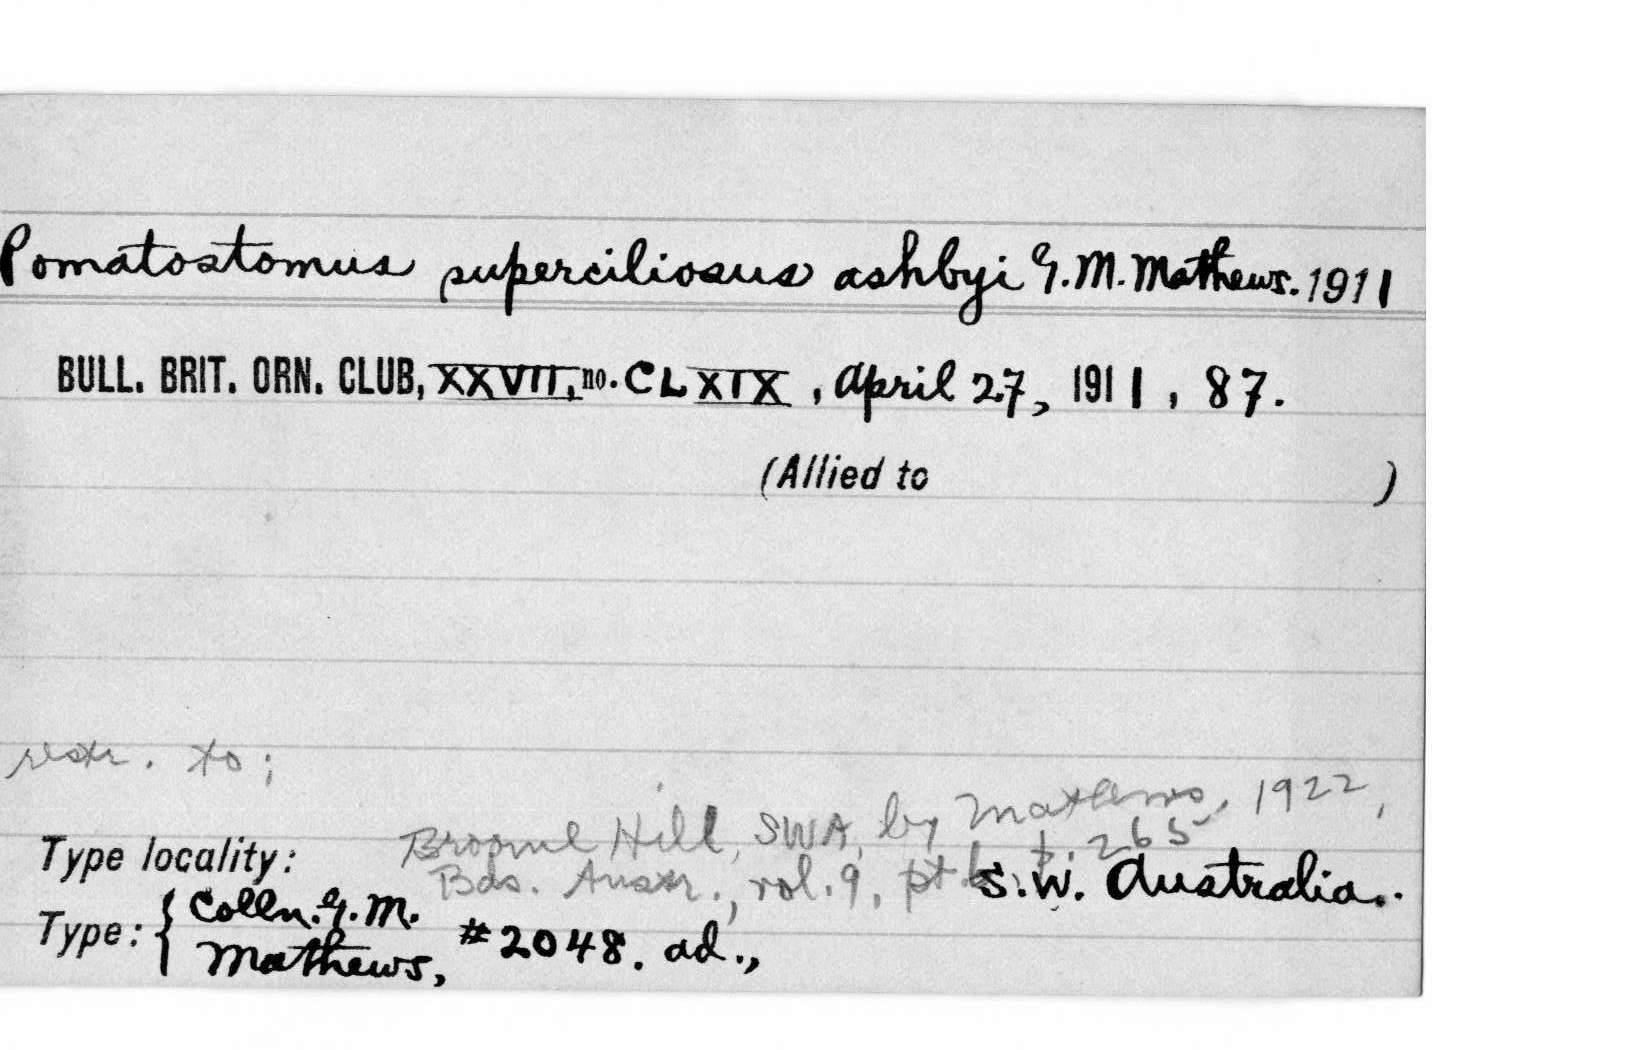 Pomatostomus superciliosus ashbyi G.M. Mathews. 1911
BULL. BRIT. ORN. CLUB, XXVII, no. CLXIX, April 27, 1911, 87.
(Allied to )
restr. to;
Broome Hill, SWA, by Mathews, 1922,
Type locality: Bds. Austr., vol. 9, pt. p. 265
S.W. Australia.
Type: { Colln. G.M. Mathews, #2048. ad.,